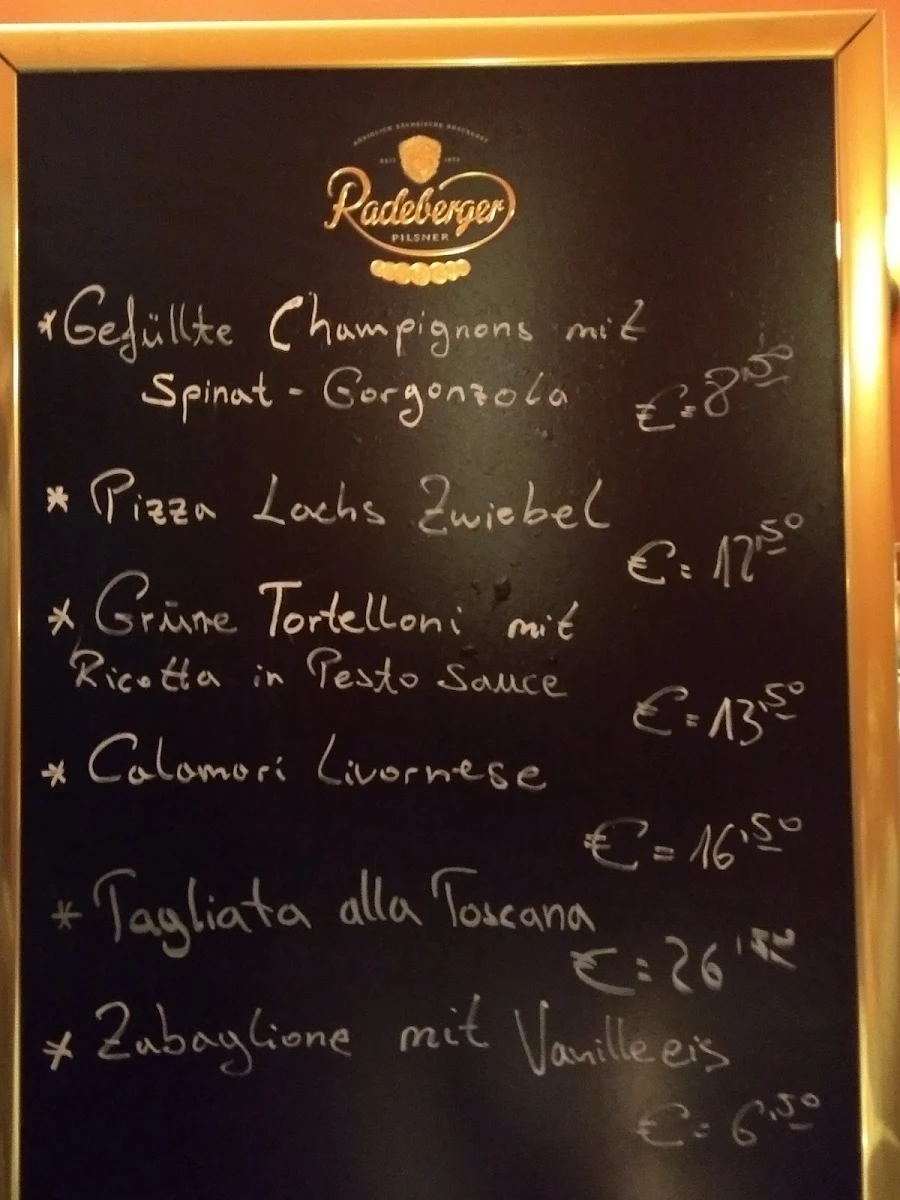 KÖNIGLICH SÄCHSISCHE BRAUKUNST
SEIT 1872
Radeberger
PILSNER
* Gefüllte Champignons mit
Spinat - Gorgonzola
€ = 8,50
* Pizza Lachs Zwiebel
€ = 12,50
* Grüne Tortelloni mit
Ricotta in Pesto Sauce
€ = 13,50
* Calamari Livornese
€ = 16,50
* Tagliata alla Toscana
€ = 26,
* Zabaglione mit Vanilleeis
€ = 6,50